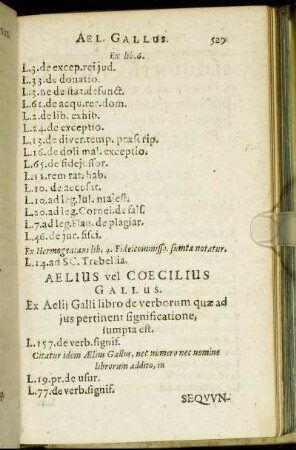 AEL. GALLUS. 529
Ex lib. 6.
L.3. de excep. rei jud.
L.33. de donatio.
L.3. ne de stat. defunct.
L.61. de acqu. rer. dom.
L.2. de lib. exhib.
L.24. de exceptio.
L.13. de diver. temp. præscrip.
L.16. de doli mal. exceptio.
L.65. de fidejussor.
L.11. rem rat. hab.
L.10. de accusat.
L.10. ad leg. Jul. majest.
L.20. ad leg. Cornel. de fals.
L.7. ad leg. Flau. de plagiar.
L.46. de jur. fisci.
Ex Hermogeniani lib. 4. Fideicommisso. sumta notatur.
L.14. ad SC. Trebellia.
AELIUS vel COECILIUS
GALLUS.
Ex Aelij Galli libro de verborum quæ ad
jus pertinent significatione,
sumpta est.
L.157. de verb. signif.
Citatur idem Ælius Gallus, nec numero nec nomine
librorum addito, in
L.19. pr. de usur.
L.77. de verb. signif.
SEQVVN-